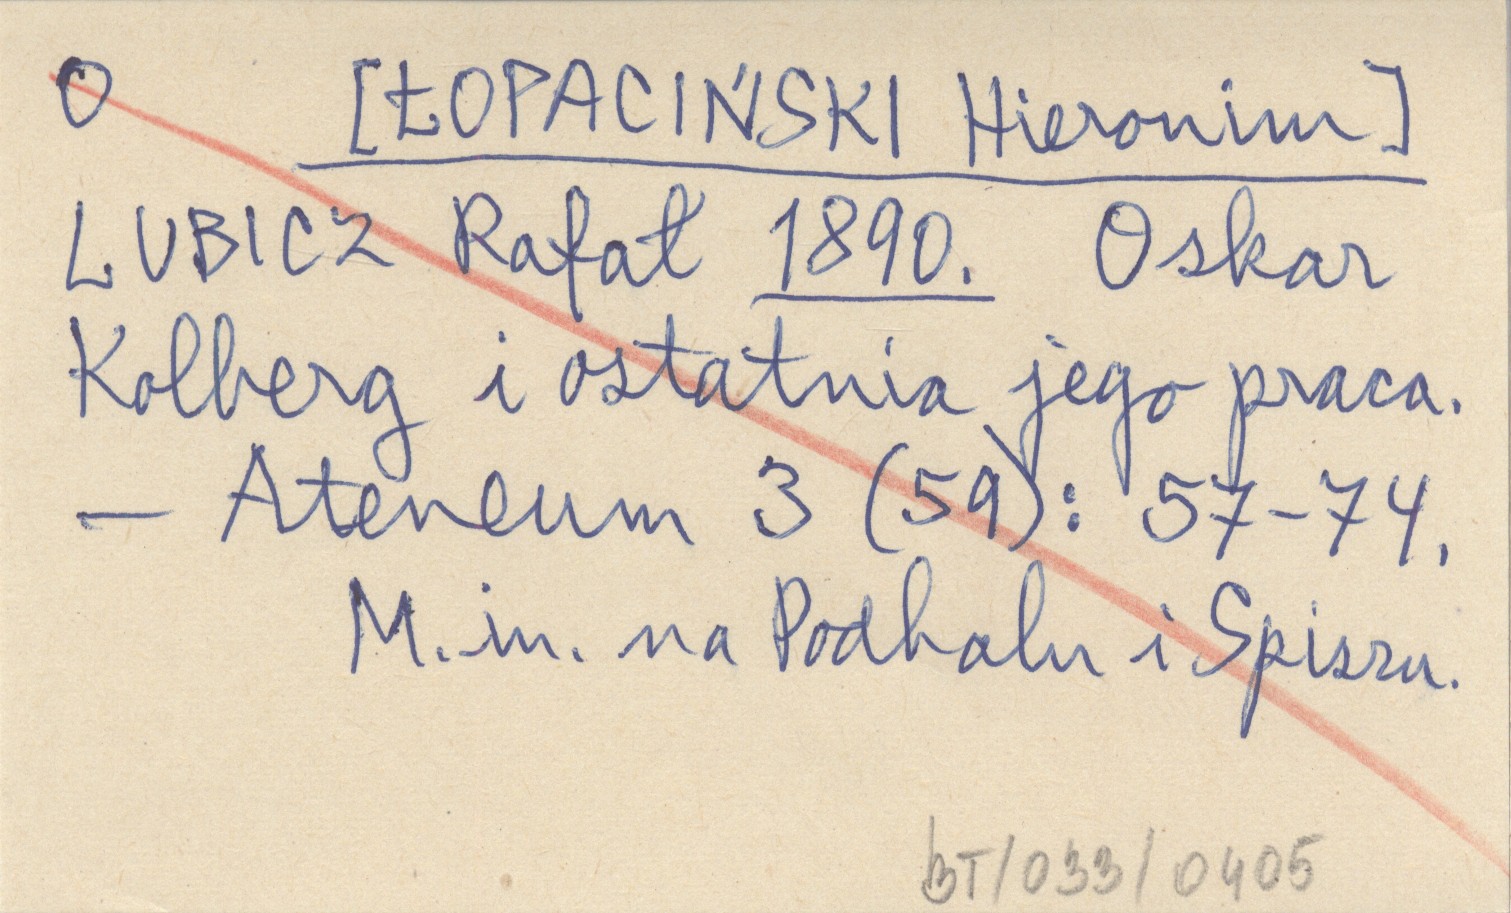 O [ŁOPACIŃSKI Hieronim]
LUBICZ Rafał 1890. Oskar
Kolberg i ostatnia jego praca.
— Ateneum 3 (59): 57-74.
M.in. na Podhalu i Spiszu.
BT/033/0405